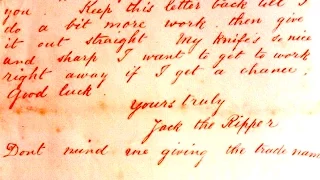 you. Keep this letter back till I
do a bit more work. then give
it out straight My knife's so nice
and sharp I want to get to work
right away if I get a chance.
Good luck.
Yours truly
Jack the Ripper
Dont mind me giving the trade name